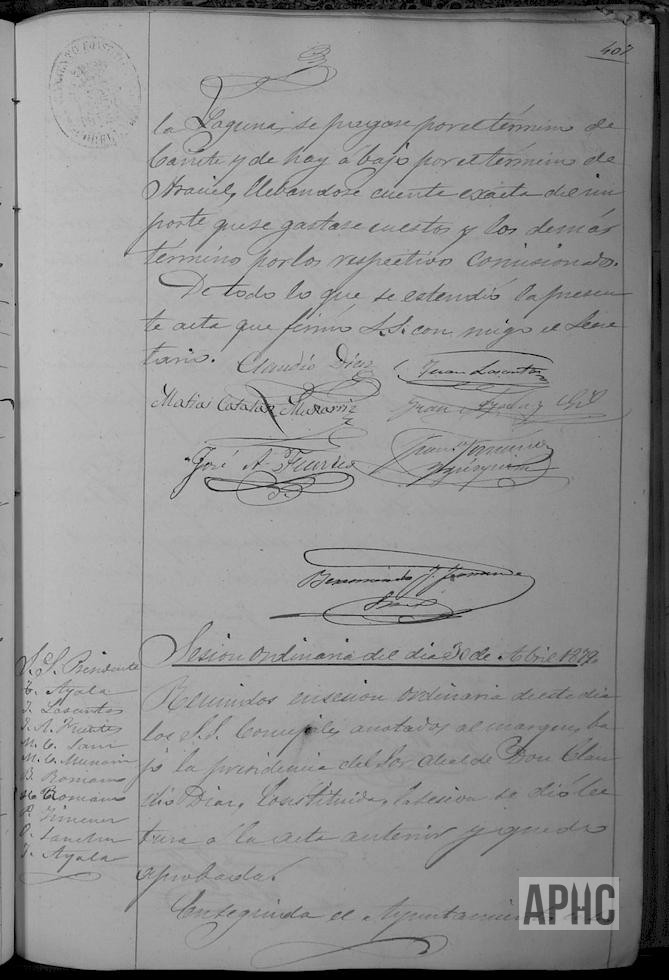 407
la Laguna, se pagase por el término de
Cañete y de hay abajo por el término de
Araciel, llebandose cuenta exacta del im
porte que se gastase en esto y los demás
término por los respectivos comisionado.
De todo lo que se estendió la presen
te acta que firmó S.S. con migo el Secre
tario.
Claudio Diez
Juan Lasantas
Matias Catalan Munarriz
José A. Fuertes
Sesion ordinaria del dia 30 de Abril 1879.
S. S. Presidente
T. Ayala
J. Lasantas
J. A. Fuertes
M. C. Sanz
M. C. Munarriz
B. Romano
Romano
P. Jimenez
O. Sanchez
J. Ayala
Reunidos en sesion ordinaria de este dia
los S.S. Concejales anotados al margen, ba
jo la presidencia del Sor. Alcalde Don Clau
dio Diaz, Constituida, la sesion se dió lec
tura á la acta anterior y quedó
aprobada.
Enseguida el Ayuntamiento
APHC